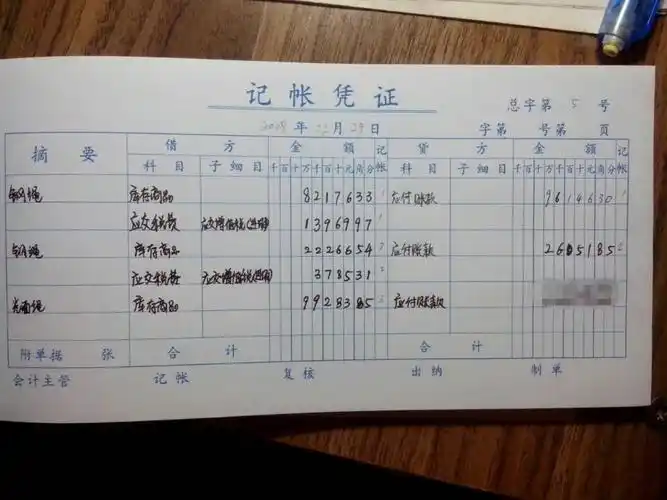 记帐凭证
总字第 5 号
2018 年 12 月 29 日 字第 号第 页
摘要 借方 金额 记帐 贷方 金额 记帐
科目 子细目 千百十万千百十元角分 科目 子细目 千百十万千百十元角分
钢绳 库存商品 8217633 1 应付账款 9614630 1
应交税费 应交增值税(进项) 1396997 1
钢绳 库存商品 2226654 2 应付账款 2605185 2
应交税费 应交增值税(进项) 378531 2
光面绳 库存商品 9928385 应付账款
附单据 张 合计 合计
会计主管 记帐 复核 出纳 制单